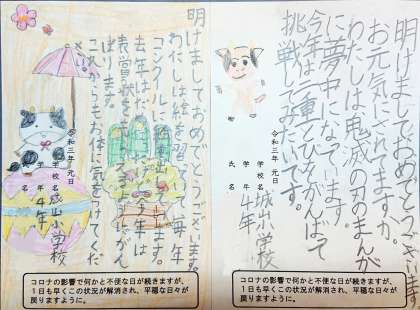 明けましておめでとうございます。
お元気にされてますか。
わたしは鬼滅の刃のまんが
に夢中になっています。
今年は二重とびをがんばって
挑戦してみたいです。
令和三年 元日
学校名 城山小学校
学年 4年
氏名
コロナの影響で何かと不便な日が続きますが、
1日も早くこの状況が解消され、平穏な日々が
戻りますように。
明けましておめでとうございます。
わたしは絵を習っていて毎年
コンクールに
去年は
表賞状
ばります。
これからもお体に気をつけてくだ
令和三年 元日
学校名 城山小学校
学年 4年
氏名
コロナの影響で何かと不便な日が続きますが、
1日も早くこの状況が解消され、平穏な日々が
戻りますように。